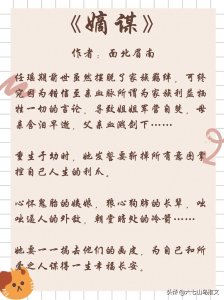 《嫡谋》
作者：面北眉南
任瑶期前世虽然摆脱了家族羁绊，可终
究因为错信至亲血脉所谓为家族利益牺
牲一切的言论，导致姐姐军营自焚，母
亲含泪早逝，父亲血溅刑下……
重生于幼时，她发誓要斩掉所有意图掌
控自己人生的利爪。
心怀鬼胎的姨娘，狼心狗肺的长辈，咄
咄逼人的外敌，朝堂暗处的冷箭……
她要一一揭去他们的画皮，为自己和所
爱之人谋得一生幸福长安。
头条 @六七山鸟推文